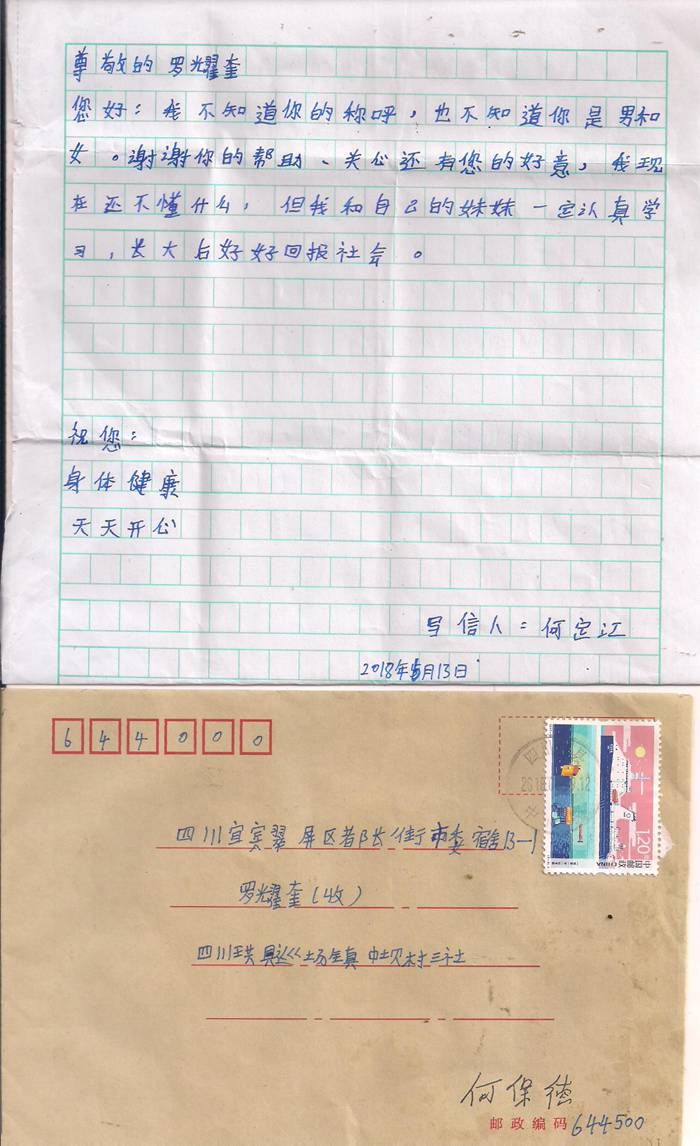 尊敬的 罗耀奎
您好：我不知道你的称呼，也不知道你是男和
女。谢谢你的帮助、关心还有您的好意，我现
在还不懂什么，但我和自己的妹妹一定认真学
习，长大后好好回报社会。
祝您：
身体健康
天天开心
写信人：何定江
2018年5月13日
644000
四川宜宾翠屏区都长街市委宿舍13-1
罗耀奎（收）
四川珙县巡场镇 中坝村三社
何保德
邮政编码 644500
1.20
中国邮政 CHINA